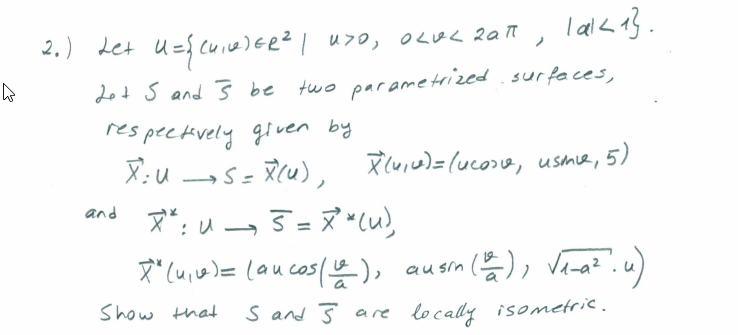 2.) Let U={(u,v)∈R² | u>0, 0<v<2aπ, |a|<1}.
Let S and S̄ be two parametrized surfaces,
respectively given by
X⃗:U → S = X⃗(U), X⃗(u,v)=(ucosv, usinv, 5)
and X⃗*: U → S̄ = X⃗*(U),
X⃗*(u,v)= (au cos(v/a), au sin(v/a), √1-a² . u)
Show that S and S̄ are locally isometric.